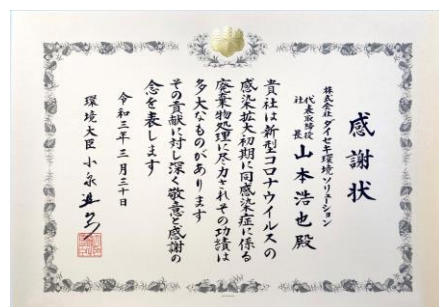 感謝状
株式会社ダイセキ環境ソリューション
代表取締役
社長
山本浩也殿
貴社は新型コロナウイルスの
感染拡大初期に同感染症に係る
廃棄物処理に尽力されその功績は
多大なものがあります
その貢献に対し深く敬意と感謝の
念を表します
令和三年三月三十日
環境大臣 小泉進次郎